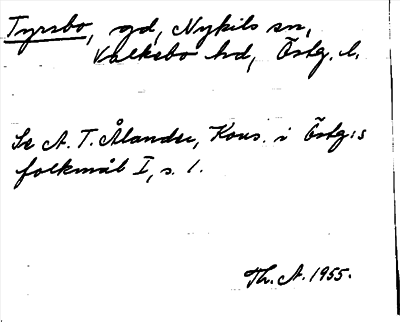 Tyrsbo, gd, Nykils sn,
Valkebo hd, Östg. l.
Se A. T. Ålander, Kons. i Östg:s
folkmål I, s. 1.
Th. A. 1955.